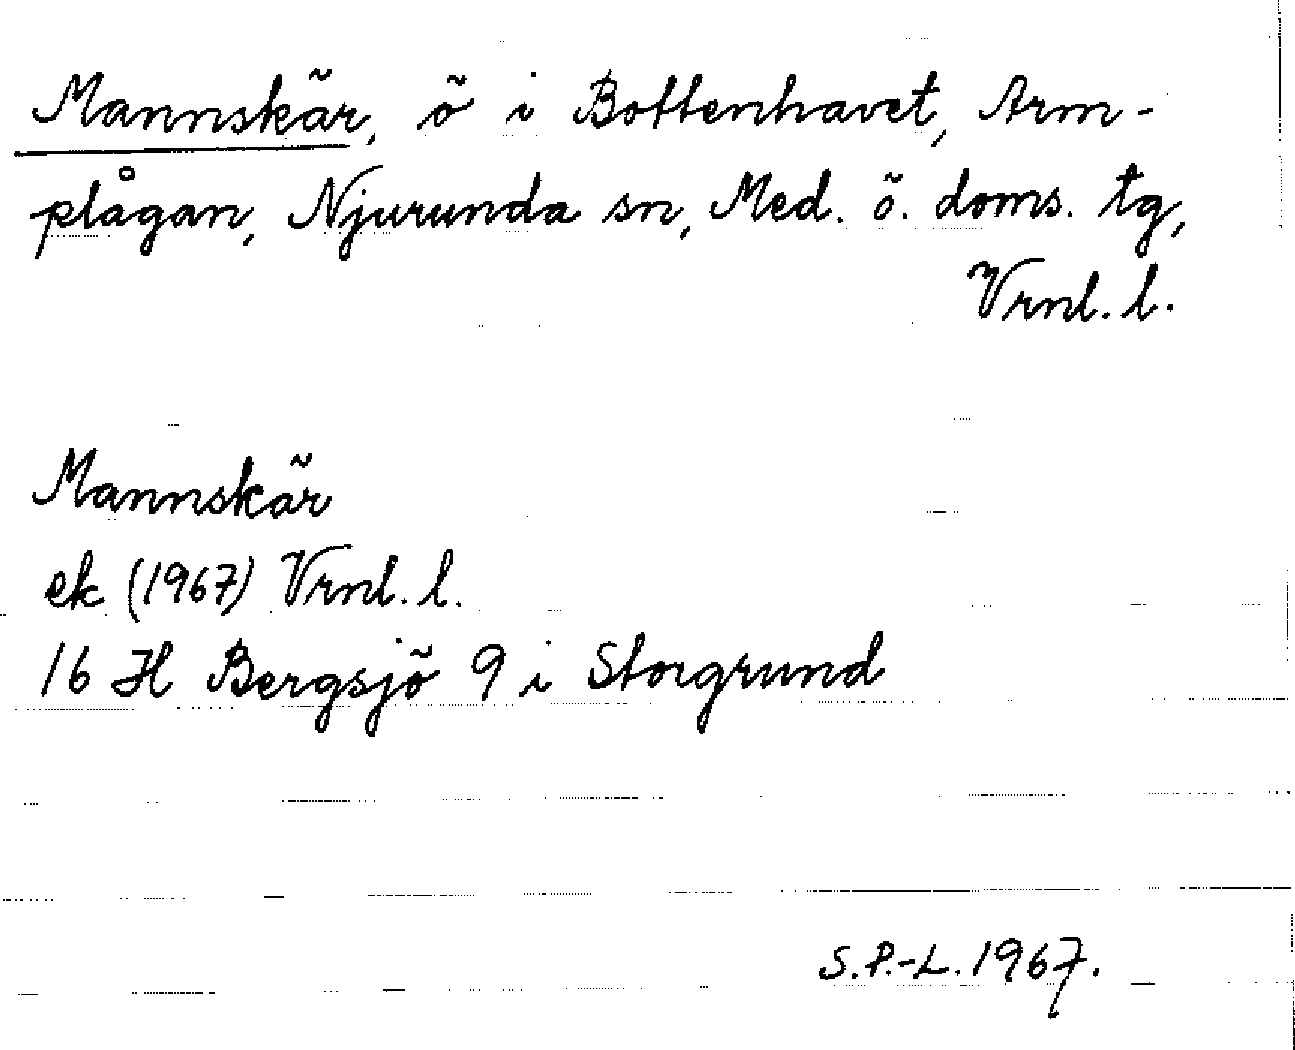 Mannskär, ö i Bottenhavet, Arm-
plågan, Njurunda sn, Med. ö. doms. tg,
Vrnl. l.
Mannskär
ek (1967) Vrnl. l.
16 H Bergsjö 9 i Storgrund
S.P.-L. 1967.